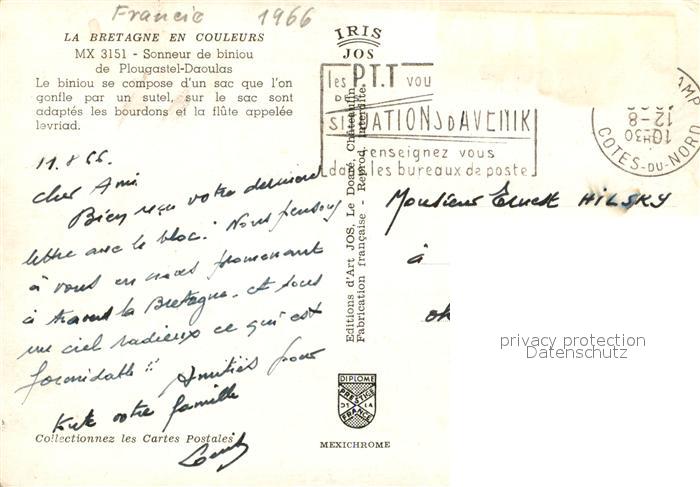 Francie 1966
LA BRETAGNE EN COULEURS
MX 3151 - Sonneur de biniou
de Plougastel-Daoulas
Le biniou se compose d'un sac que l'on
gonfle par un sutel, sur le sac sont
adaptés les bourdons et la flûte appelée
levriad.
11.8.66.
Cher Ami
Bien reçu votre dernière
lettre avec le bloc. Nous pensons
à vous en nous promenant
à travers la Bretagne. et sous
un ciel radieux ce qui est
formidable !! Amitiés pour
toute votre famille
Collectionnez les Cartes Postales
IRIS
JOS
Editions d'Art JOS, Le Doaré, Châteaulin
Fabrication française - Reprod. interdite.
DIPLOME
PRESTIGE
DE LA
FRANCE
MEXICHROME
les P.T.T vou
DE
SITUATIONS D'AVENIR
renseignez vous
dans les bureaux de poste
10H30
12-8
COTES-DU-NORD
Monsieur Ernest HILSKY
à
ok
privacy protection
Datenschutz